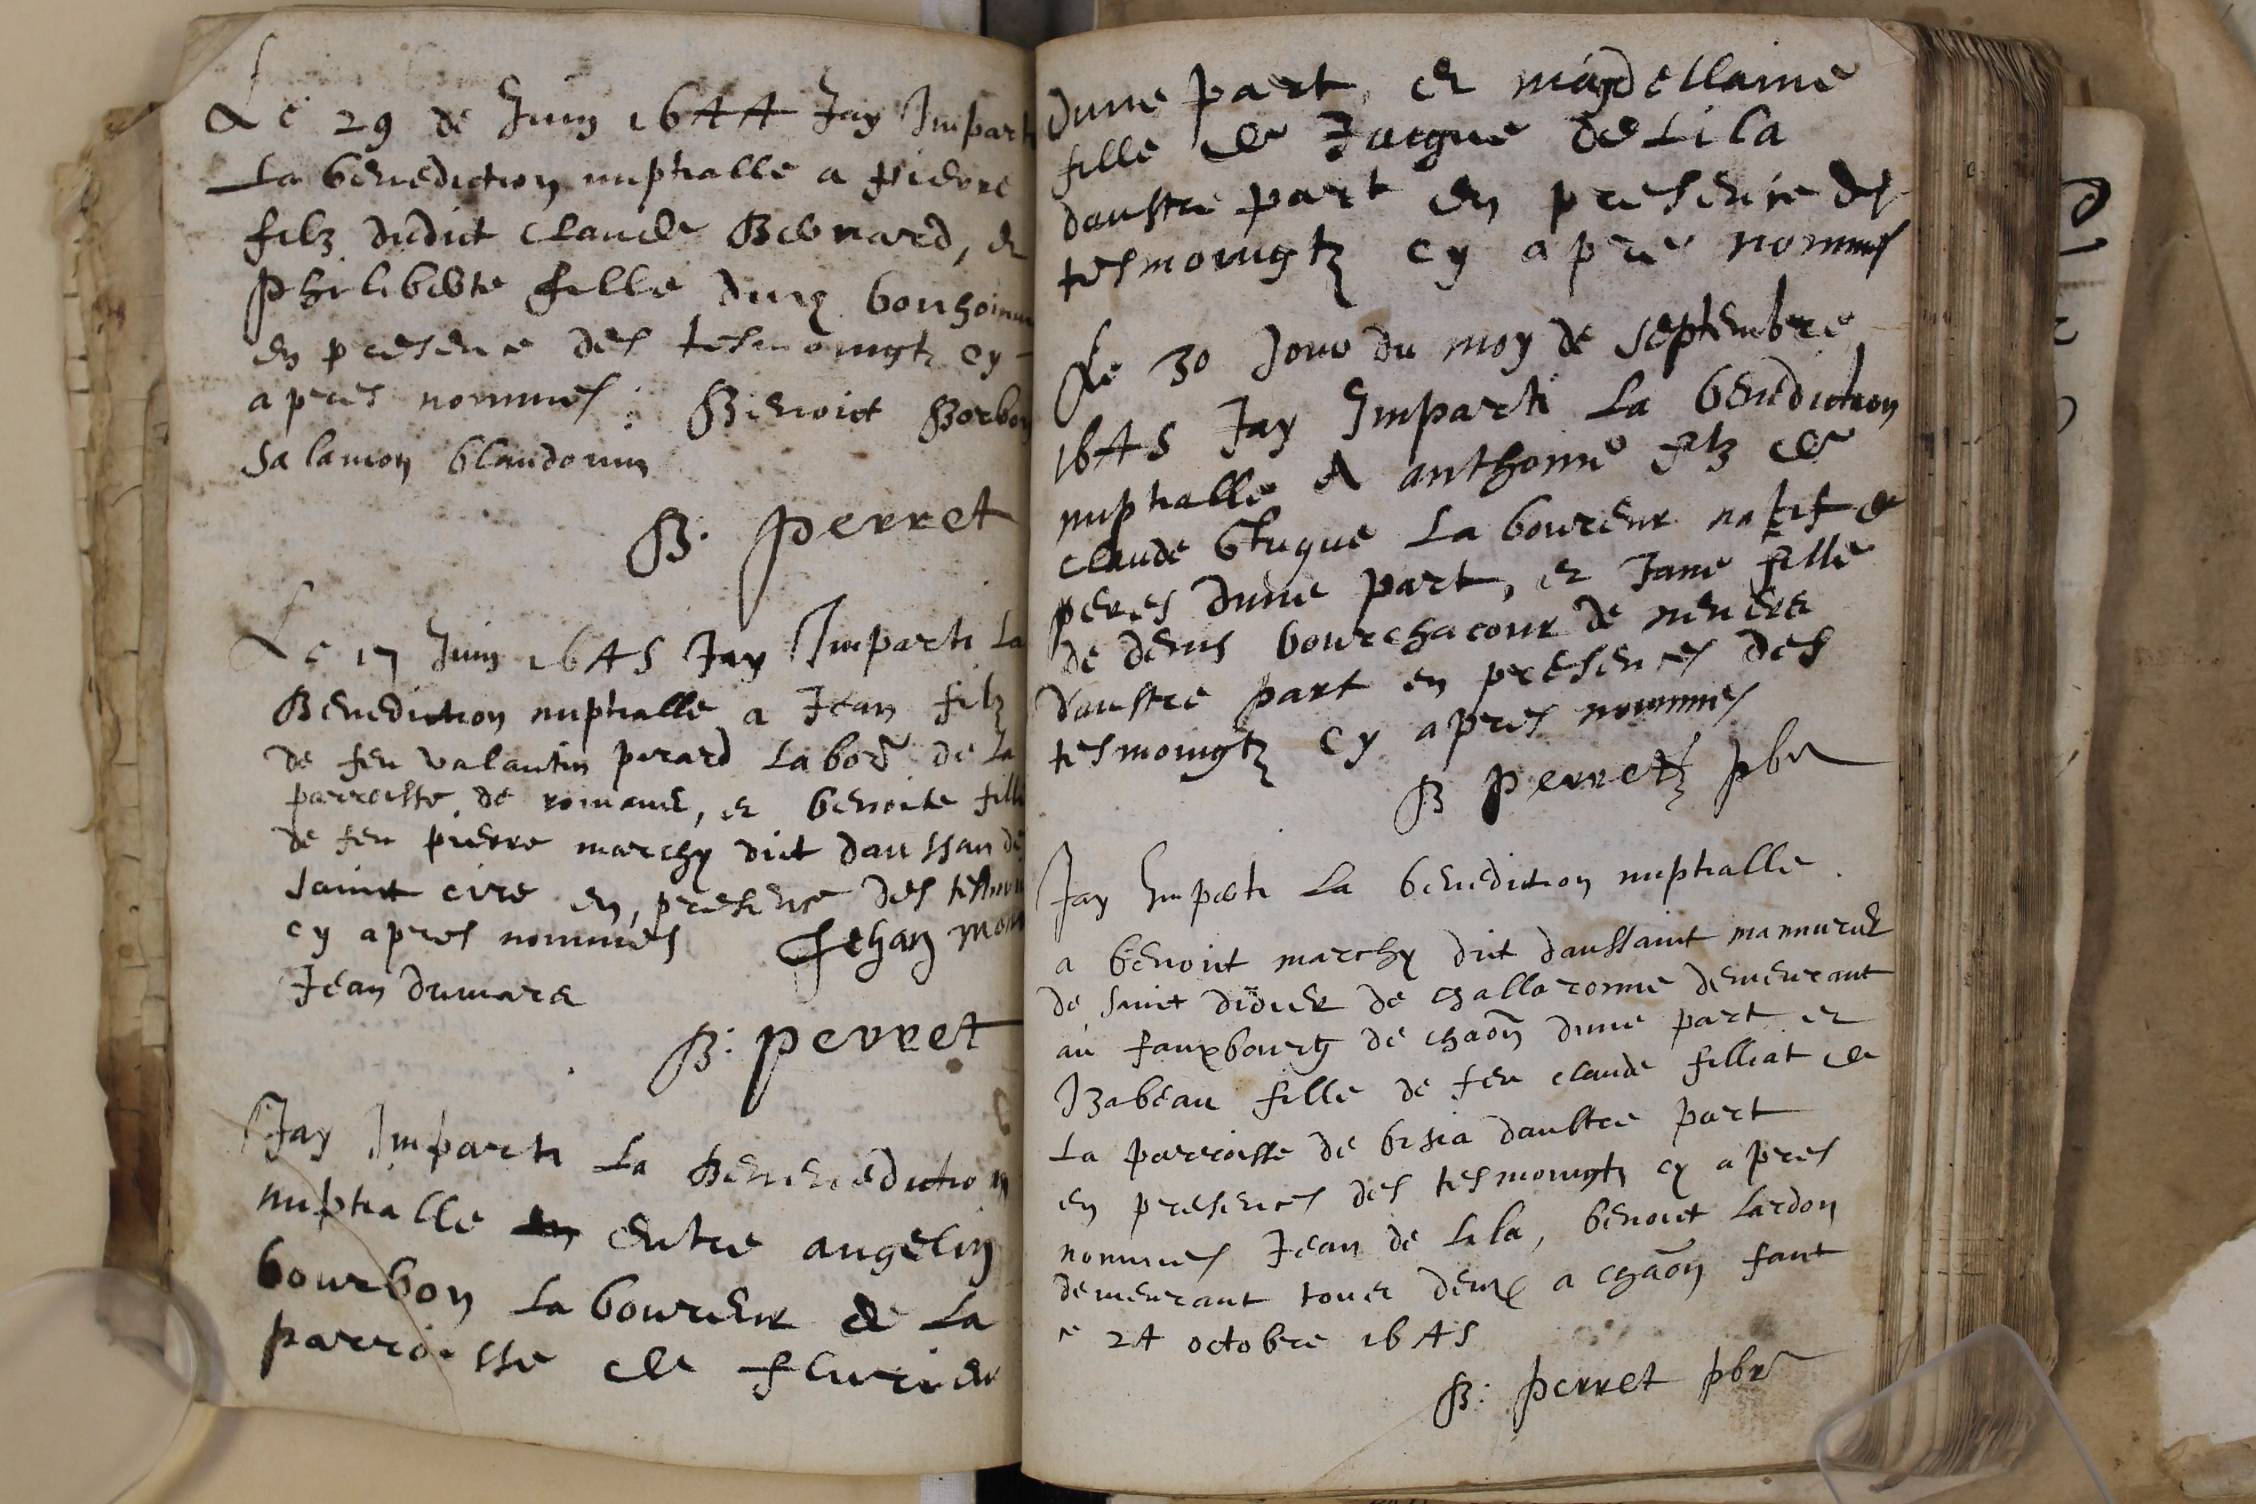 Le 29 de Juin 1644 Jay Impart
La benediction nuptialle a pierre
filz dudict claude Bernard, et
philiberte fille dun bonhomme
en presence des tesmoingtz cy
apres nommes : Benoict Borbon
Salamon blandonin
B. perret
Le 17 Juin 1645 Jay Imparti La
Benediction nuptialle a Jean filz
de feu valantin perard Labor de La
parroisse de romane, et benoite fille
de feu pierre marchy dict daussan de
saint cire en presence des tesmoi
cy apres nommes Jehan mon
Jean dumare
B: perret
Jay Imparti La Benenediction
nuptialle en entre angelin
bourbon Laboureur de La
parroisse de flurieu
dune part, et magdellaine
fille de Jacque de Lila
daustre part en presensie des
tesmoingtz cy apres nommes
Le 30 Jour du moy de septembre
1645 Jay Imparti La benediction
nuptialle A anthoine filz de
claude Laboureur natif de
peres dune part, et Jane fille
de denis bourchacour de
daustre part en presences des
tesmoingtz cy apres nommes
B perretz pbr
Jay Imparti La benediction nuptialle
a benoit marchy dit daussaint
de saint didier de challaronne demeurant
au fauxbourg de chaon dune part et
Izabeau fille de feu claude filliat de
La parroisse de bisia daultre part
en presences des tesmoingtz cy apres
nommes Jean de Lila, benoit Lardon
demeurant tout deux a chaon faut
e 24 octobre 1645
B: perret pbr